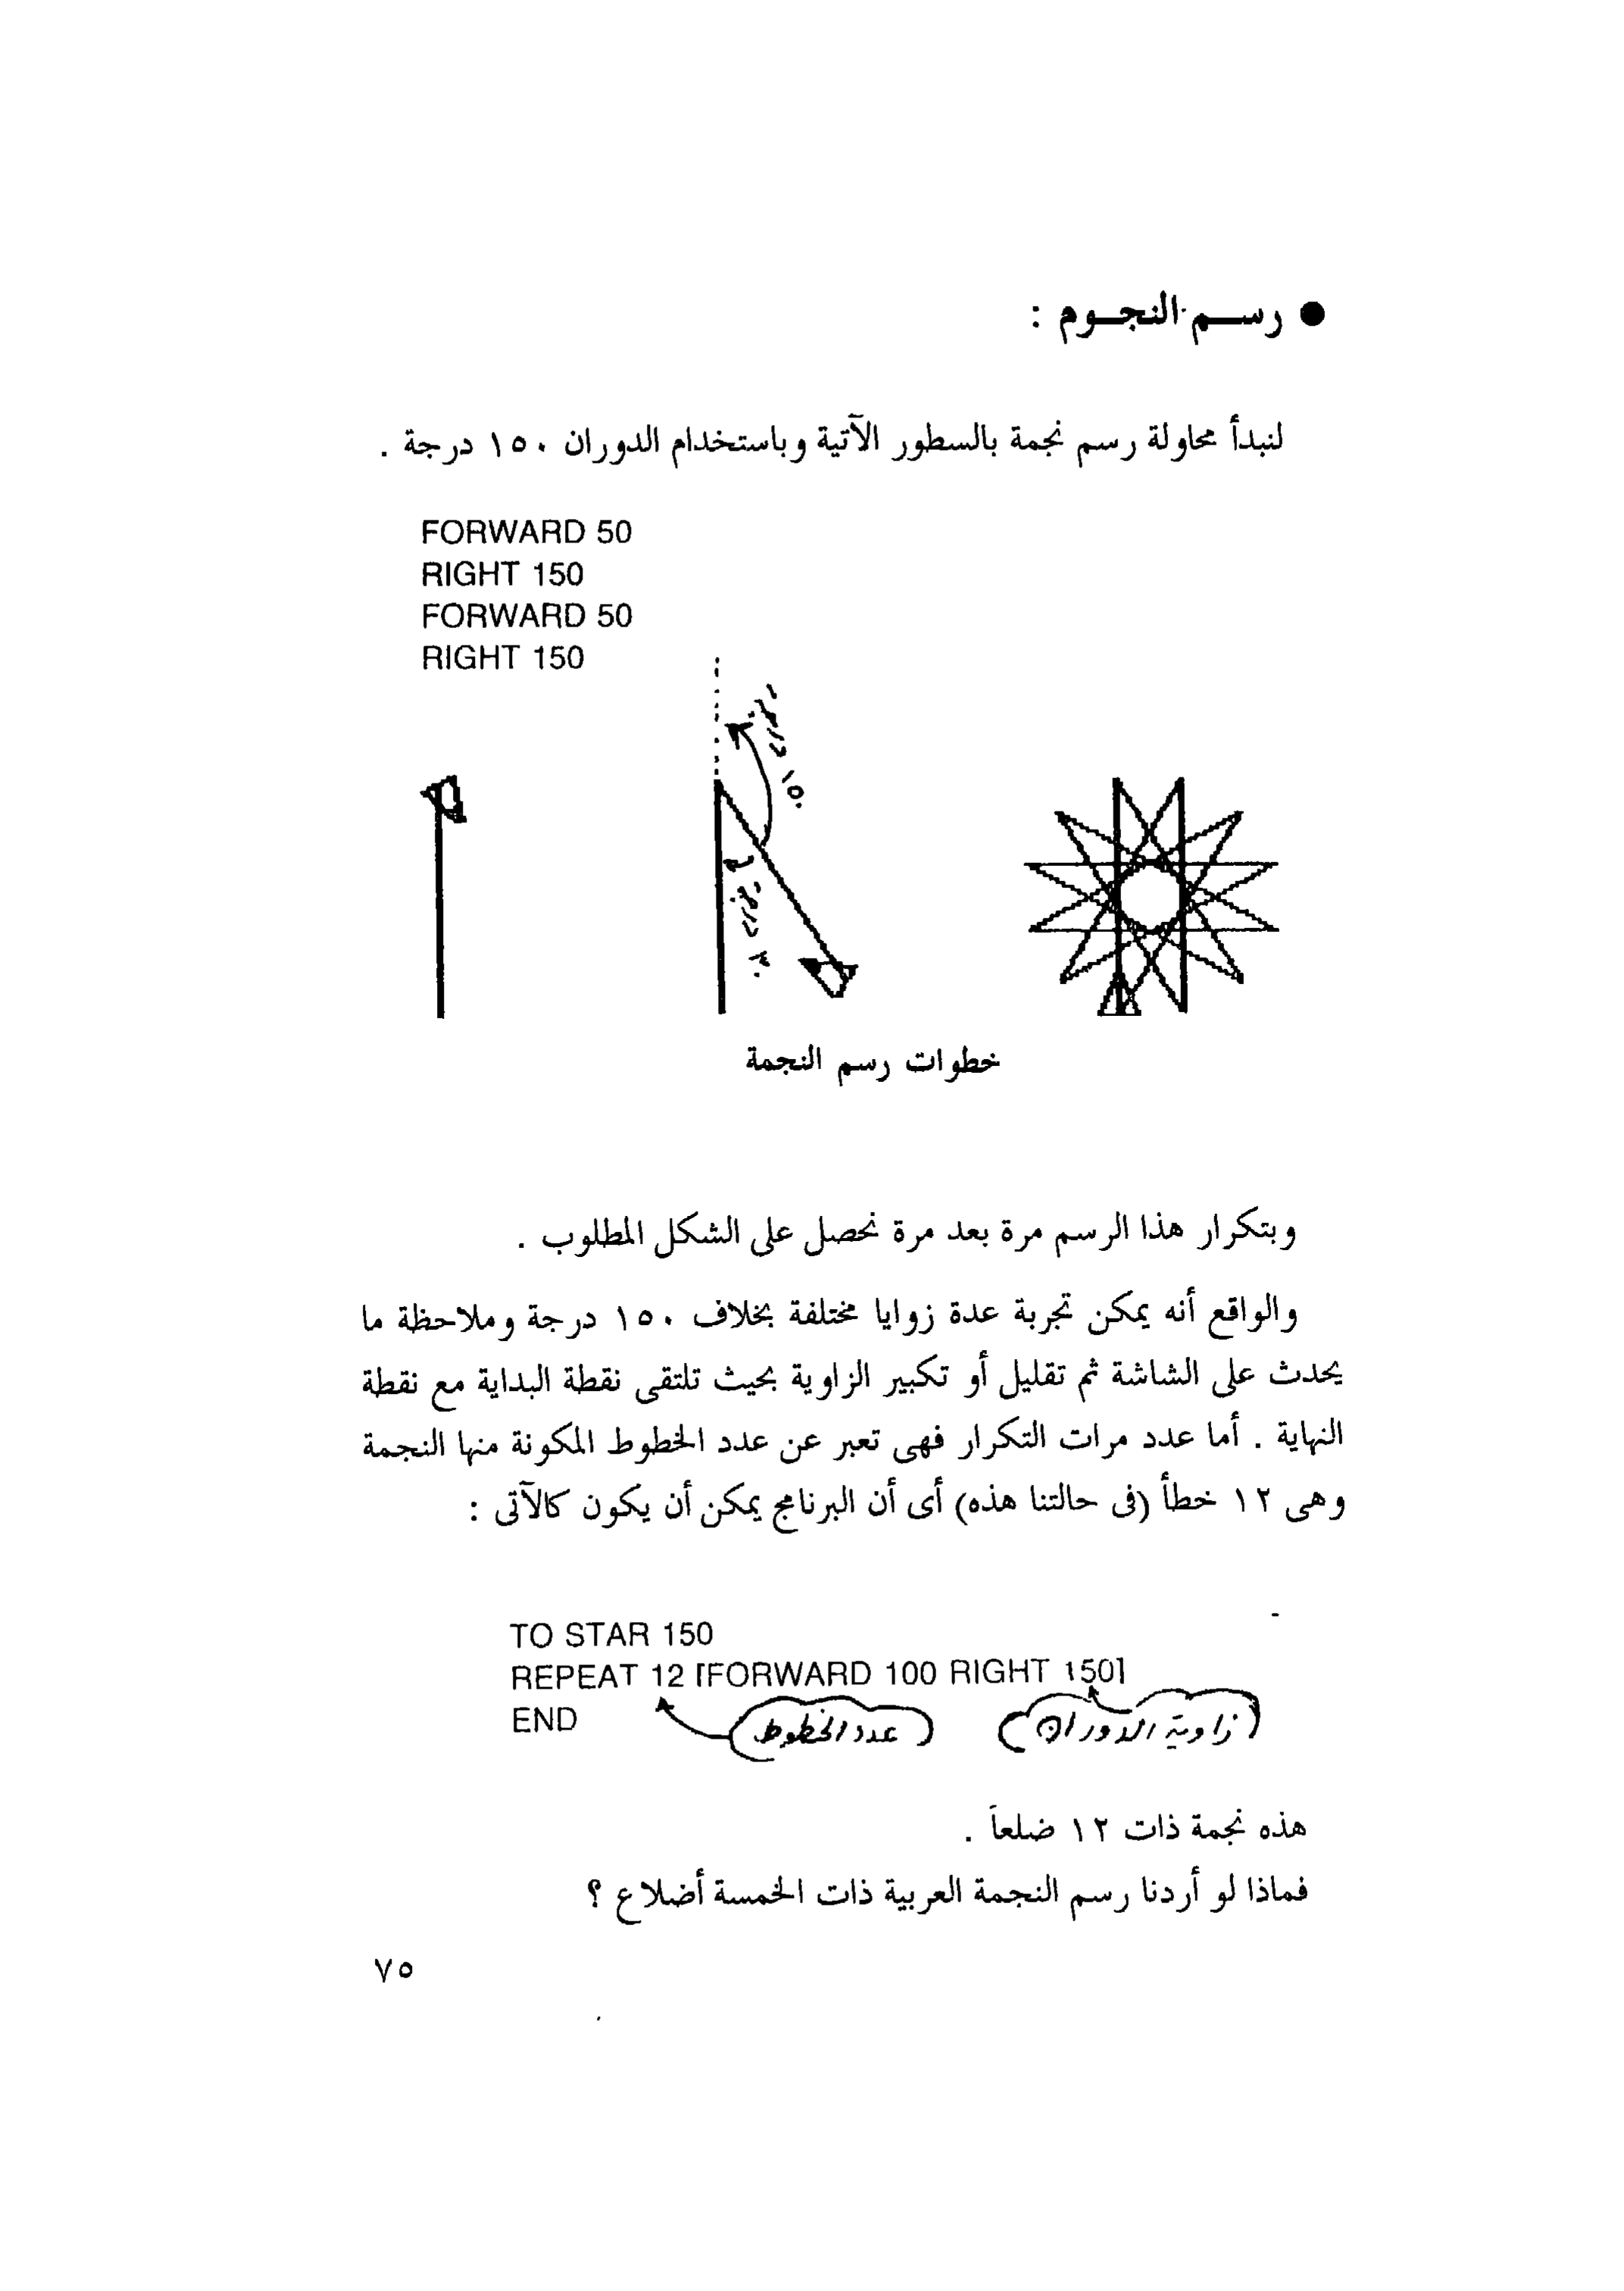 ● رسم النجوم :
لنبدأ محاولة رسم نجمة بالسطور الآتية وباستخدام الدوران ١٥٠ درجة .
FORWARD 50
RIGHT 150
FORWARD 50
RIGHT 150
١٥٠ درجة
٣٠ درجة
خطوات رسم النجمة
وبتكرار هذا الرسم مرة بعد مرة نحصل على الشكل المطلوب .
والواقع أنه يمكن تجربة عدة زوايا مختلفة بخلاف ١٥٠ درجة وملاحظة ما
يحدث على الشاشة ثم تقليل أو تكبير الزاوية بحيث تلتقى نقطة البداية مع نقطة
النهاية . أما عدد مرات التكرار فهى تعبر عن عدد الخطوط المكونة منها النجمة
وهى ١٢ خطأ (فى حالتنا هذه) أى أن البرنامج يمكن أن يكون كالآتى :
TO STAR 150
REPEAT 12 [FORWARD 100 RIGHT 150]
END
عدد الخطوط
زاوية الدوران
هذه نجمة ذات ١٢ ضلعاً .
فماذا لو أردنا رسم النجمة العربية ذات الخمسة أضلاع ؟
٧٥